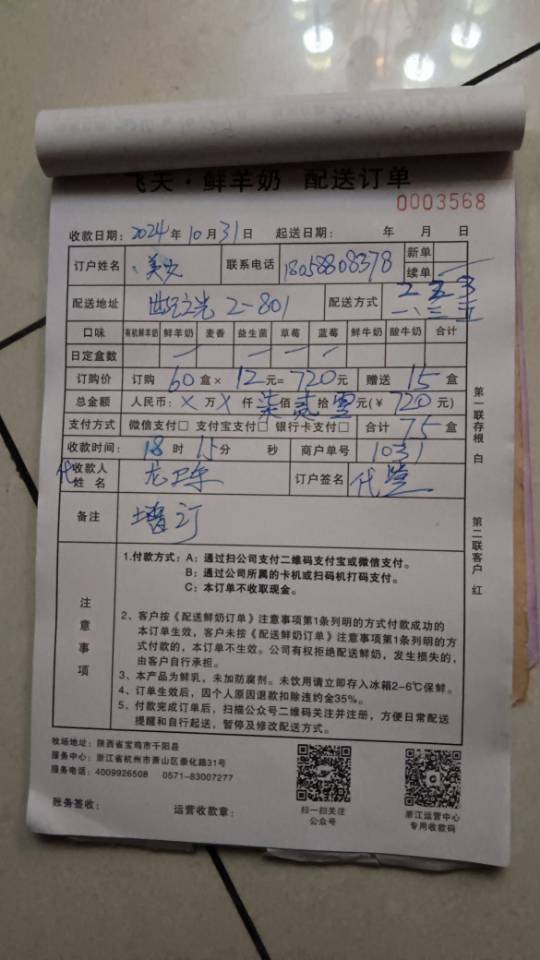 飞天·鲜羊奶 配送订单
0003568
收款日期: 2024年10月31日 起送日期: 年 月 日
订户姓名 联系电话 18058808378 新单 续单
配送地址 世纪之光 2-801 配送方式 一、三、五
口味 有机鲜羊奶 鲜羊奶 麦香 益生菌 草莓 蓝莓 鲜牛奶 酸牛奶 合计
日定盒数
订购价 订购 60 盒× 12 元= 720 元 赠送 15 盒
总金额 人民币: × 万 × 仟 柒 佰 贰 拾 零 元(¥ 720 元)
支付方式 微信支付□ 支付宝支付□ 银行卡支付□ 合计 75 盒
收款时间: 18 时 15 分 秒 商户单号 1031
代收款人姓名 订户签名 代签
备注 增订
注意事项
1.付款方式: A: 通过扫公司支付二维码支付宝或微信支付。
B: 通过公司所属的卡机或扫码机打码支付。
C: 本订单不收取现金。
2、客户按《配送鲜奶订单》注意事项第1条列明的方式付款成功的
本订单生效，客户未按《配送鲜奶订单》注意事项第1条列明的方
式付款的，本订单不生效。公司有权拒绝配送鲜奶，发生损失的，
由客户自行承担。
3、本产品为鲜乳，未加防腐剂。未饮用请立即存入冰箱2-6℃保鲜。
4、订单生效后，因个人原因退款扣除违约金35%。
5、付款完成订单后，扫描公众号二维码关注并注册，方便日常配送
提醒和自行起送，暂停及修改配送方式。
第一联存根 白
第二联客户 红
牧场地址: 陕西省宝鸡市千阳县
服务中心: 浙江省杭州市萧山区崇化路31号
服务电话: 4009926508 0571-83007277
扫一扫关注
公众号
浙江运营中心
专用收款码
账务签收: 运营收款章: